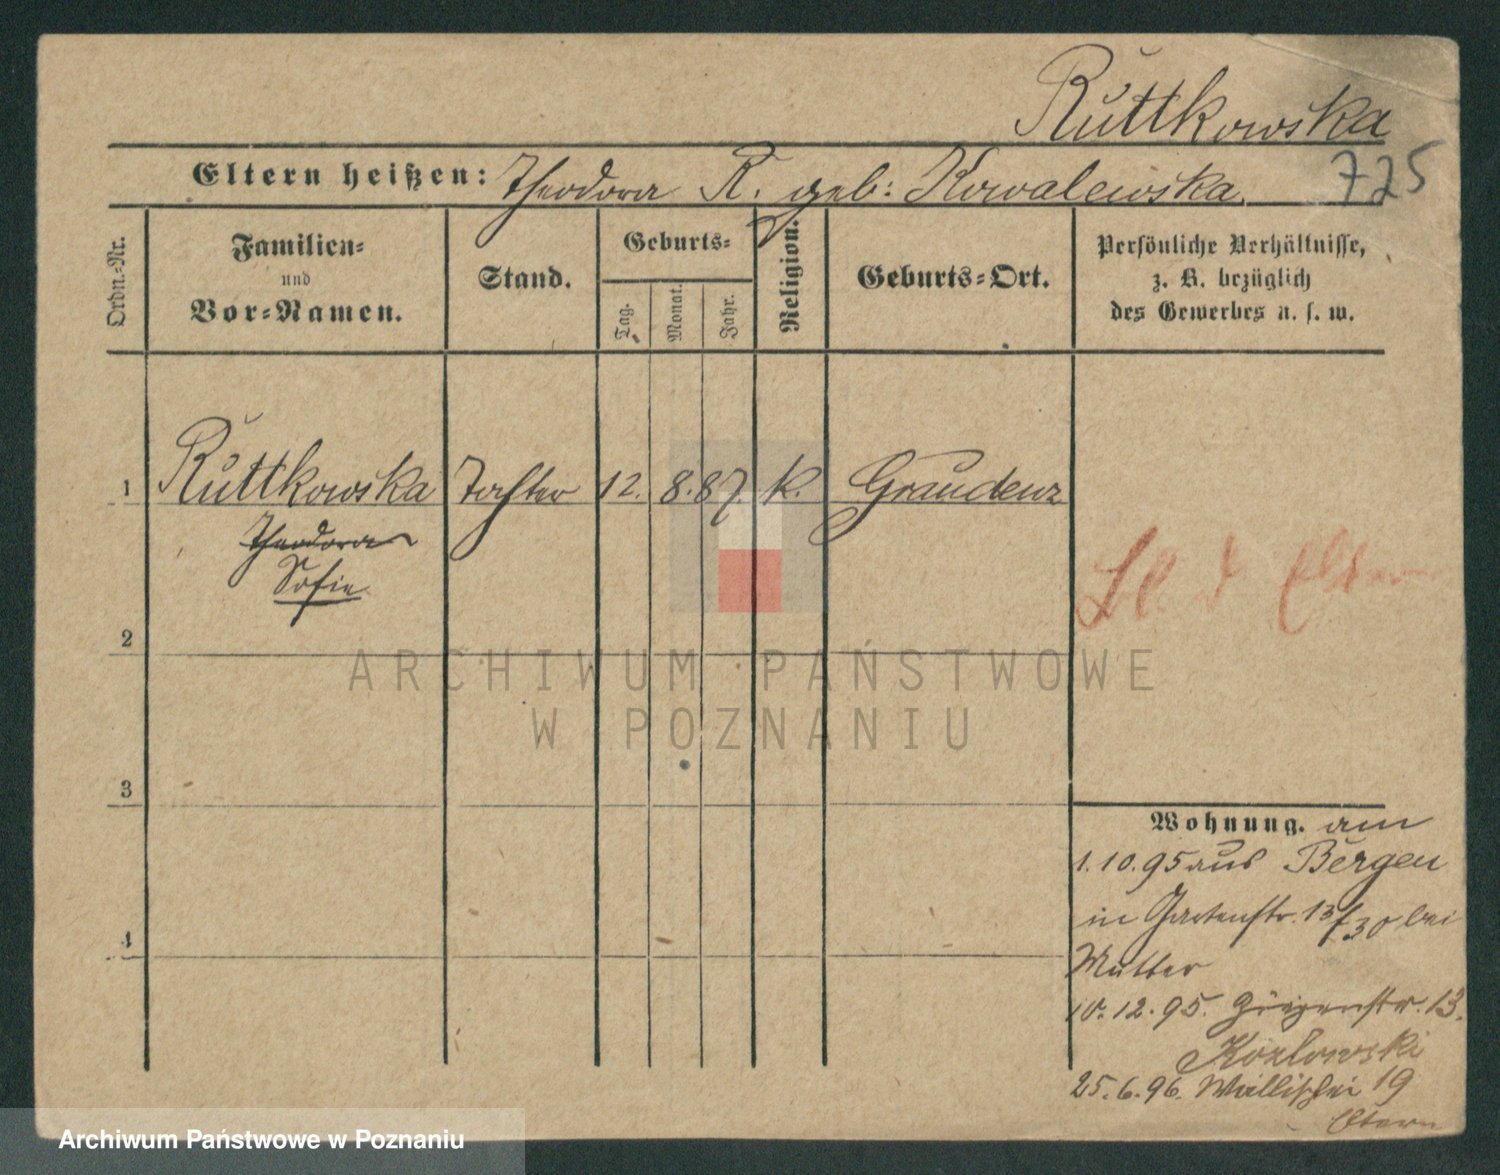 Ruttkowska
Eltern heißen: Theodora R. geb: Kowalewska.
725
Ordn.-Nr.
Familien-
und
Vor-Namen.
Stand.
Geburts-
Tag.
Monat.
Jahr.
Religion.
Geburts-Ort.
Persönliche Verhältnisse,
z. B. bezüglich
des Gewerbes u. s. w.
1 Ruttkowska Tochter 12. 8. 87. k. Graudenz
Theodora
Sofie
2
3
4
Wohnung. am
1.10.95 aus Bergen
in Gartenstr. 13/30 bei
Mutter
10.12.95. 13.
Kozlowski
25.6.96. Wallischei 19
Eltern
ARCHIWUM PAŃSTWOWE
W POZNANIU
Archiwum Państwowe w Poznaniu